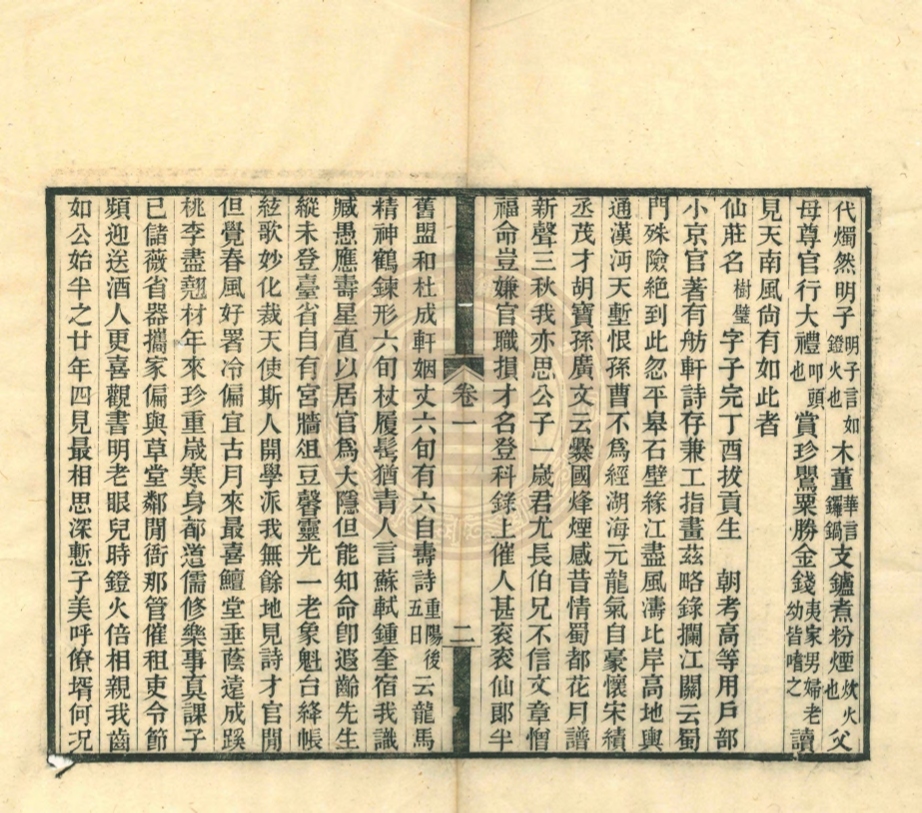 代燭然明子明子言如鐙火也木董華言鑼鍋支鑪煮粉煙炊火也父
母尊官行大禮叩頭也賞珍罌粟勝金錢夷家男婦老幼皆嗜之讀
見天南風尚有如此者
仙莊名樹璧字子完丁酉拔貢生 朝考高等用戶部
小京官著有舫軒詩存兼工指畫茲略錄攔江關云蜀
門殊險絕到此忽平皋石壁緣江盡風濤比岸高地輿
通漢沔天塹恨孫曹不爲經湖海元龍氣自豪懷宋績
丞茂才胡寶孫廣文云爨國烽煙感昔情蜀都花月譜
新聲三秋我亦思公子一歲君尤長伯兄不信文章憎
福命豈嫌官職損才名登科錄上催人甚衮衮仙郞半
卷一 二
舊盟和杜成軒姻丈六旬有六自壽詩重陽後五日云龍馬
精神鶴鍊形六旬杖履髩猶青人言蘇軾鍾奎宿我識
臧愚應壽星直以居官爲大隱但能知命卽遐齡先生
縱未登臺省自有宮牆俎豆馨靈光一老象魁台絳帳
絃歌妙化裁天使斯人開學派我無餘地見詩才官閒
但覺春風好署冷偏宜古月來最喜鱣堂垂蔭遠成蹊
桃李盡翹材年來珍重歲寒身都道儒修樂事真課子
已儲薇省器攜家偏與草堂鄰閒衙那管催租吏令節
頻迎送酒人更喜觀書明老眼兒時鐙火倍相親我齒
如公始半之廿年四見最相思深慙子美呼僚壻何況